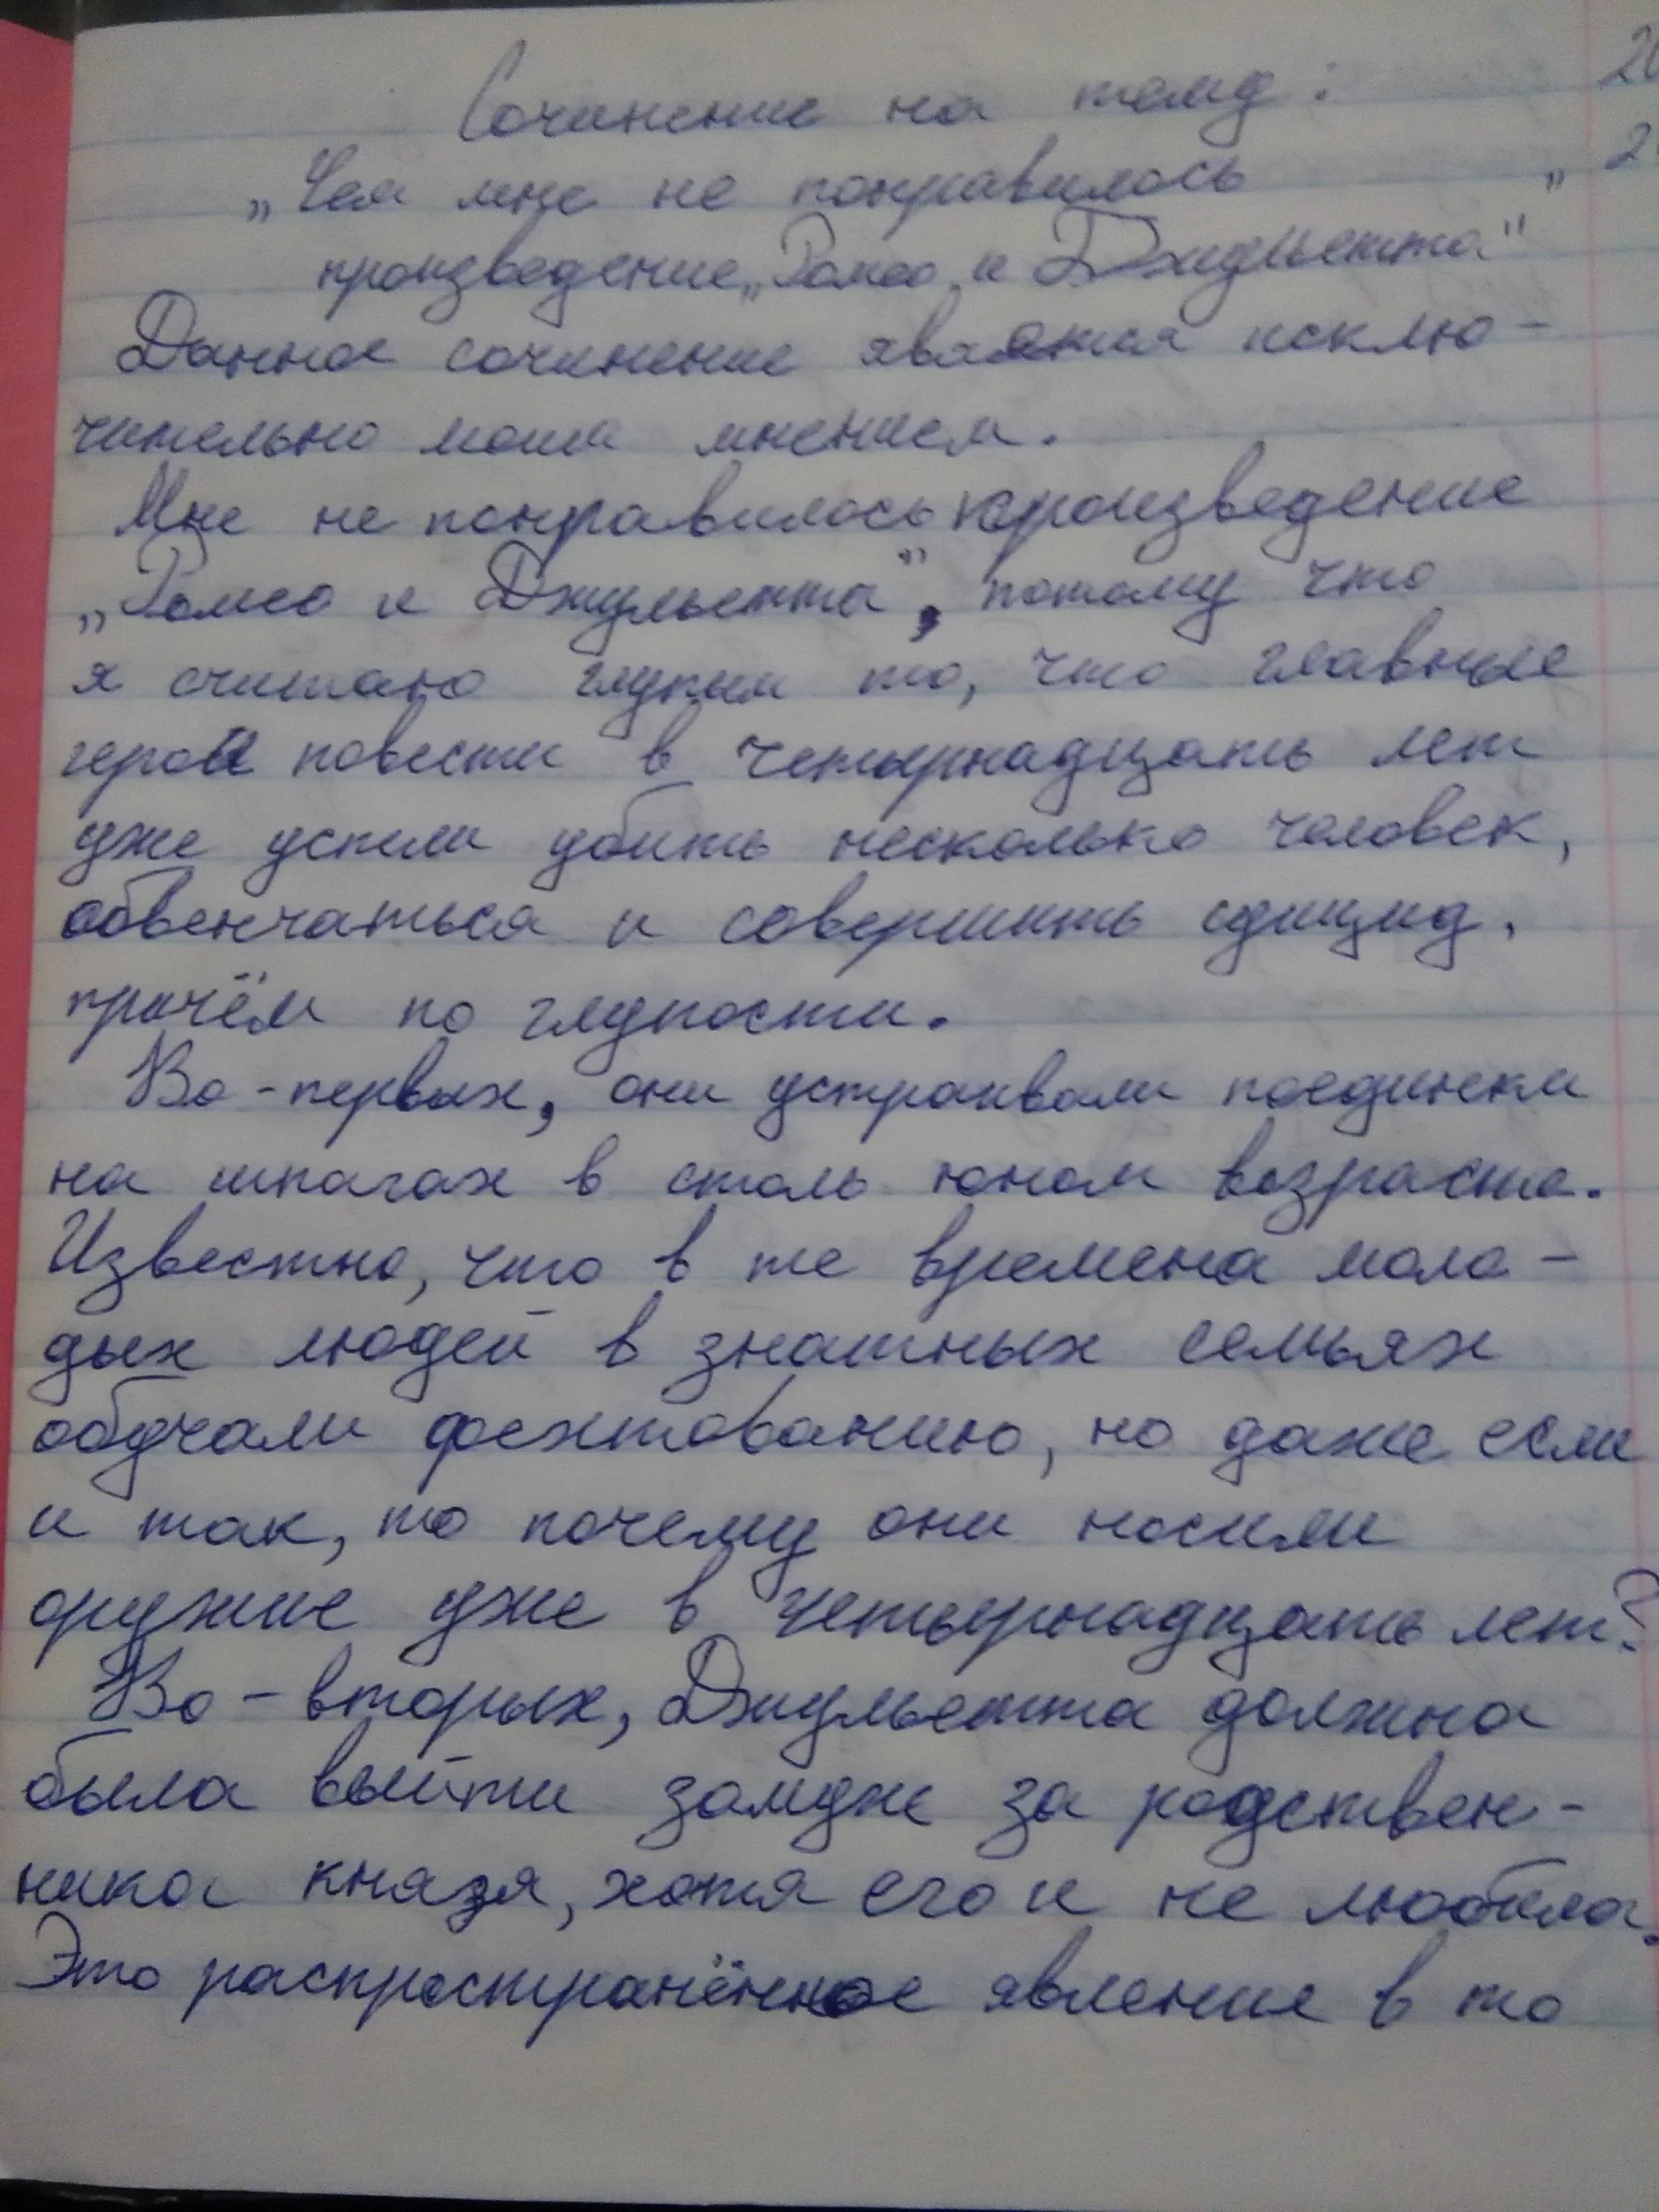 Сочинение на тему:
„Чем мне не понравилось
произведение „Ромео и Джульетта"
Данное сочинение является исклю-
чительно моим мнением.
Мне не понравилось произведение
„Ромео и Джульетта", потому что
я считаю глупым то, что главные
герои повести в четырнадцать лет
уже успели убить несколько человек,
обвенчаться и совершить суицид,
причём по глупости.
Во-первых, они устраивали поединки
на шпагах в столь юном возрасте.
Известно, что в те времена моло-
дых людей в знатных семьях
обучали фехтованию, но даже если
и так, то почему они носили
оружие уже в четырнадцать лет?
Во-вторых, Джульетта должна
была выйти замуж за родствен-
ника князя, хотя его и не любила.
Это распространённое явление в то